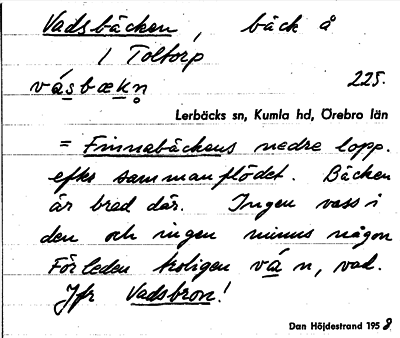 Vadsbäcken, bäck å
/ Toltorp
vásbækn̥ 225.
Lerbäcks sn, Kumla hd, Örebro län
= Finnabäckens nedre lopp.
efter sammanflödet. Bäcken
är bred där. Ingen vass i
den och ingen minns någon
Förleden troligen vá n, vad.
Jfr Vadsbron!
Dan Höjdestrand 1958